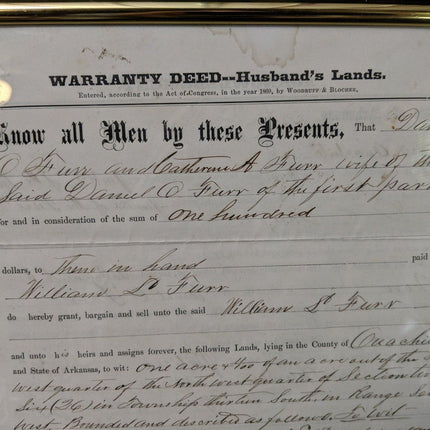 WARRANTY DEED--Husband's Lands.
Entered, according to the Act of Congress, in the year 1869, by WOODRUFF & BLOCHER,
Know all Men by these Presents, That Dan
O Furr and Catherine A Furr wife of the
Said Daniel O Furr of the first par
for and in consideration of the sum of one hundred
dollars, to them in hand paid
William St Furr
do hereby grant, bargain and sell unto the said William St Furr
and unto his heirs and assigns forever, the following Lands, lying in the County of Ouachi
and State of Arkansas, to wit: one acre 4/00 of an acre out of the
west quarter of the North west quarter of Section
Six (26) in Township thirteen South in Range
West. Bounded and described as follows To Wit